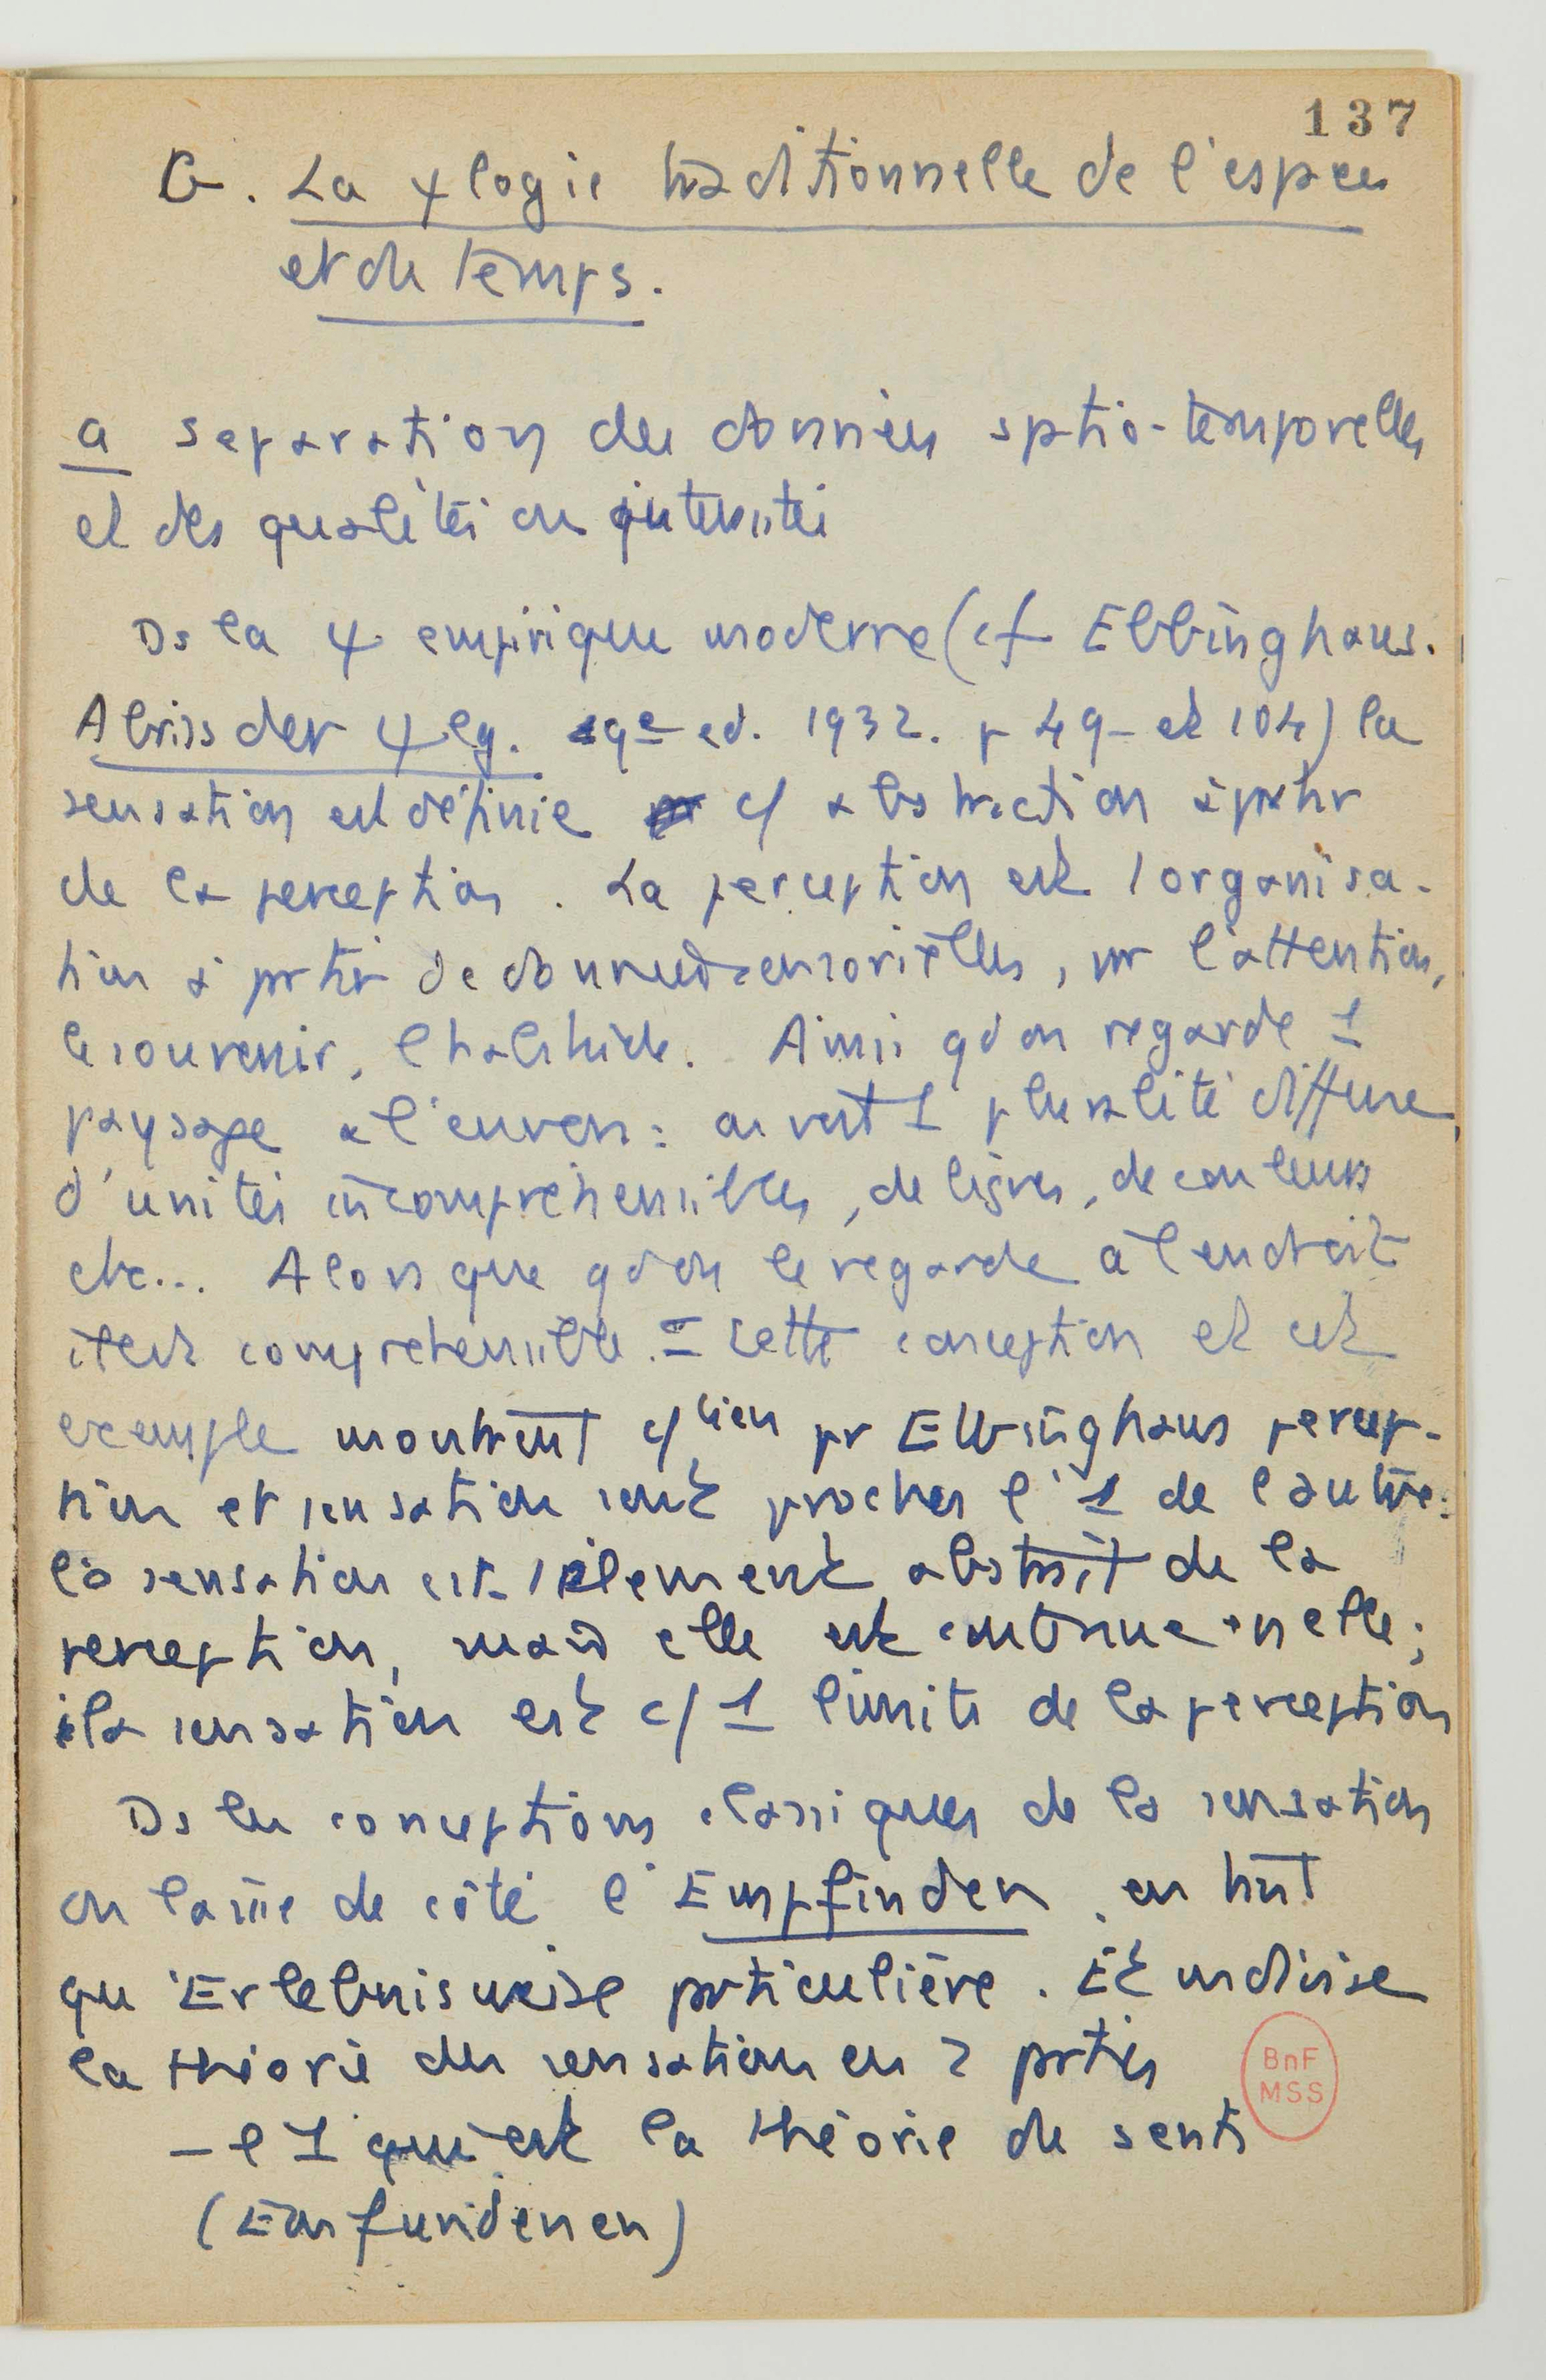 137
B. La ψlogie traditionnelle de l'espace
et du temps.
a separation des données sptio-temporelles
et des qualités ou intensités
Ds la ψ empirique moderne (cf Ebbinghaus.
Abriss der ψlg. 9e ed. 1932. p 49 et 104) la
sensation est définie c/ abstraction à ptir
de la perception. La perception est l organisa-
tion à ptir de données sensorielles, par l'attention,
le souvenir, l habitude. Ainsi qd on regarde 1
paysage à l'envers: on voit 1 pluralité diffuse
d'unités incompréhensibles, de lignes, de couleurs
etc... Alors que qd on le regarde à l endroit
il est comprehensible. = cette conception et cet
exemple montrent c/bien pr Ebbinghaus percep-
tion et sensation sont proches l'1 de l autre:
la sensation est 1 élement abstrait de la
perception, mais elle est contenue en elle;
la sensation est c/ 1 limite de la perception
Ds les conceptions classiques de la sensation
on laisse de côté l'Empfinden, en tant
qu'Erlebnisweise pticulière. Et on divise
la théorie des sensations en 2 pties
- l 1 qui est la théorie du senti
(Empfundenen)
BnF
MSS